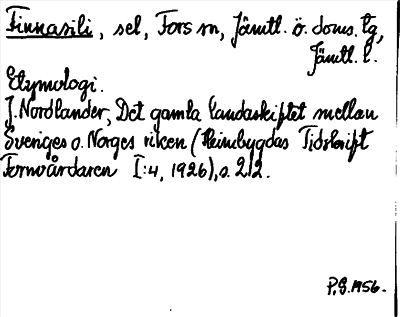 Finnasili, sel, Fors sn, Jämtl. ö. doms. tg,
Jämtl. l.
Etymologi.
J. Nordlander, Det gamla landaskiftet mellan
Sveriges o. Norges riken (Heimbygdas Tidskrift
Fornvårdaren I:4, 1926), s. 212.
P.G. 1956.